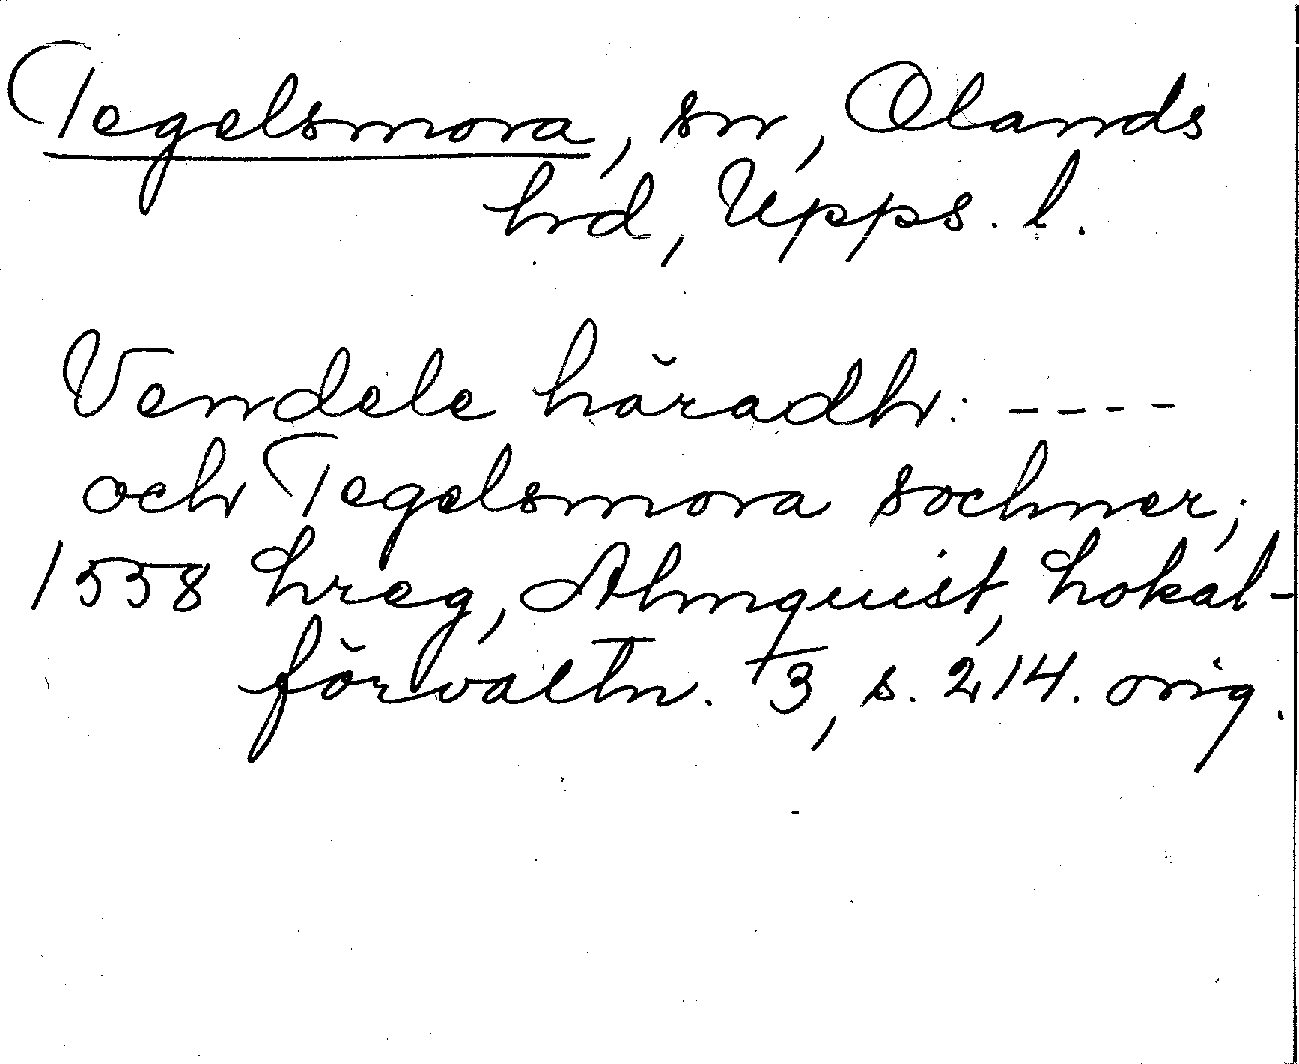 Tegelsmora, sn, Olands
hd, Upps. l.
Vendele häradh: ----
och Tegelsmora sochner;
1558 Lreg, Almquist, Lokal-
förvaltn. 3, s. 214. orig.